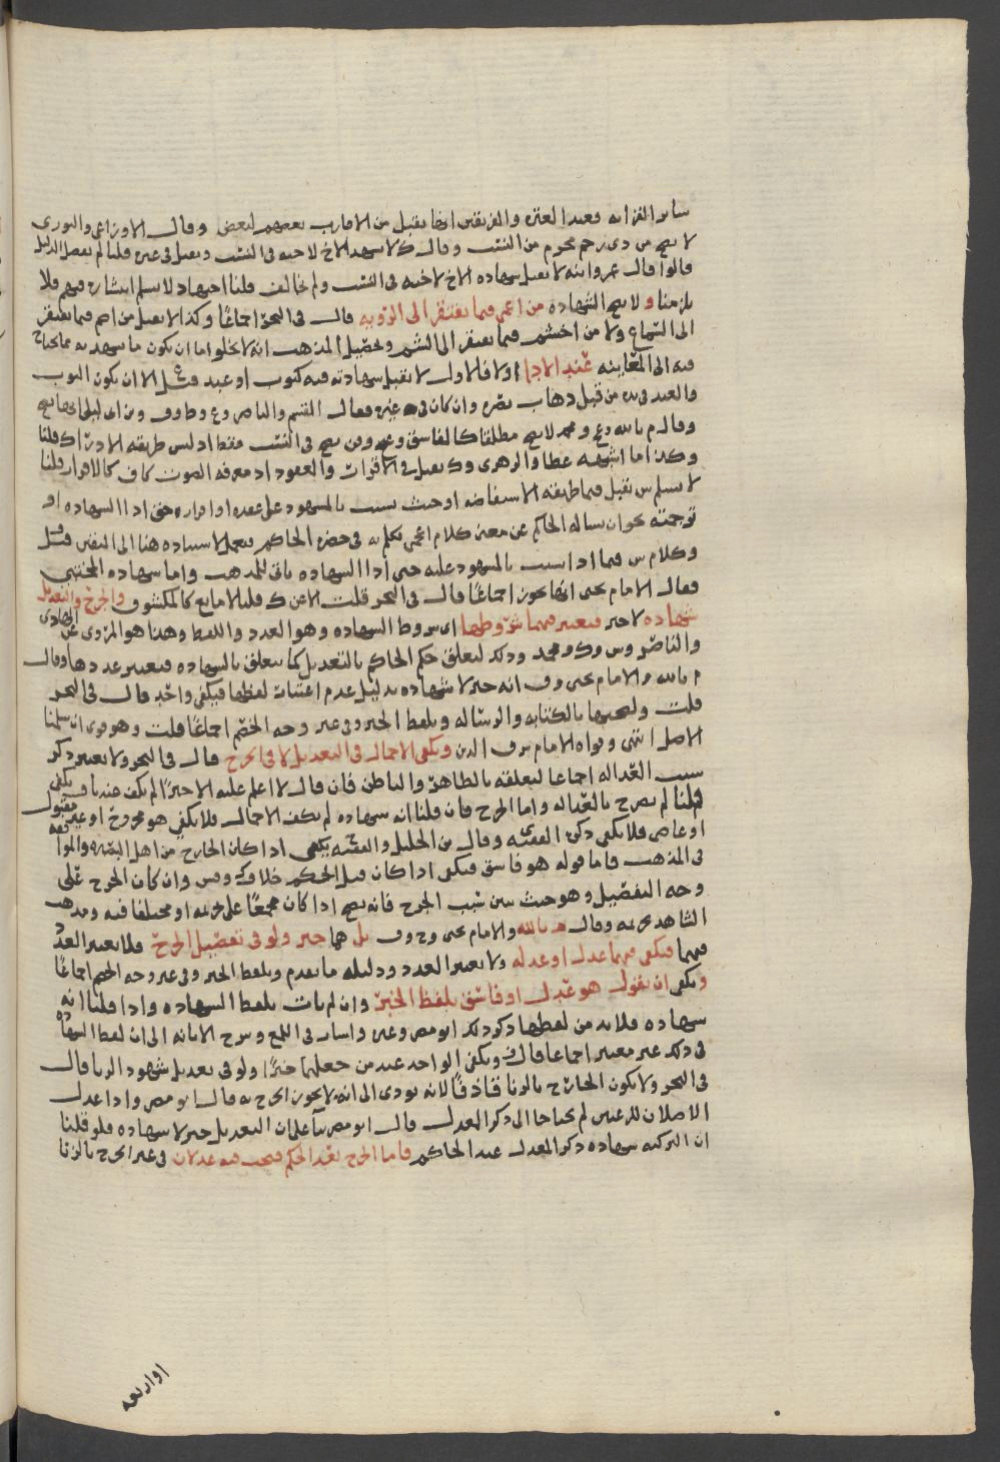 ساير القرابه فعند العتره والفريقين انها تقبل من الاقارب بعضهم لبعض وقال الاوزاعي والثوري
لا تصح من ذي رحم محرم من النسب وقال ك لا يشهد الاخ لاخيه في النسب وتقبل في غيره قلنا لم يفصل الدليل
قالوا قال عمر وابنه لا تقبل شهاده الاخ لاخيه في النسب ولم يخالف قلنا اجتهاد لا نسلم انتشاره فيهم فلا
يلزمنا ولا تصح الشهاده من اعمى فيما يفتقر الى الرؤيه قال في البحر اجماعًا وكذا لا تقبل من اصم فيما يفتقر
الى السماع ولا من اخشم فيما يفتقر الى الشم وتحصيل المذهب انه لا يخلوا اما ان يكون ما يشهد به مما يحتاج
فيه الى المعاينه عند الادا اولا فالاول لا تقبل شهادته فيه كثوب او عبد قيل الا ان يكون الثوب
والعبد في يده من قبل ذهاب بصره وان كان في غيره فقال القسم والناصر وع وط وف وبن ابي ليلى انها تصح
وقال م بالله وح ومحمد لا تصح مطلقا كالفاسق وعن وفر تصح في النسب فقط اذ ليس طريقه الادراك قلنا
وكذا ما اشبهه عطا والزهري وك تقبل في الاقرارات والعقود اذ معرفه الصوت كاف كالاقرار قلنا
لا نسلم ش تقبل فيما طريقه الاستفاضه او حيث تشبث بالمشهود على عقده او اقراره حتى ادا الشهاده او
ترجمته نحو ان يساله الحاكم عن معنى كلام اعجمي تكلم به في حضره الحاكم فيعمل لاستناده هنا الى اليقين قيل
وكلام ش فيما اذا تشبث بالمشهود عليه حتى ادا الشهاده ياتي للمذهب واما شهاده المختبي
فقال الامام يحيى انها تجوز اجماعًا قال في البحر قلت الا عن ك قلنا لا مانع كالمكشوف والجرح والتعديل
شهاده لا خبر فيعتبر فيهما شروطها اي شروط الشهاده وهو العدد واللفظ وهذا هو المروي عن الهادي
والناصر وش وك ومحمد وذلك لتعلق حكم الحاكم بالتعديل كما يتعلق بالشهاده فيعتبر عددها وقال
م بالله والامام يحيى وف انه خبر لا شهاده بدليل عدم اعتبار لفظها فيكفي واحد قال في البحر
قلت ولصحتهما بالكتابه والرساله وبلفظ الخبر وفي غير وجه الخصم اجماعًا قلت وهو قوي ان سلمنا
الاصل انتهى وقواه الامام شرف الدين ويكفي الاجمال في التعديل لا في الجرح قال في البحر ولا يعتبر ذكر
سبب العداله اجماعا لتعلقه بالظاهر والباطن فان قال لا اعلم عليه الا خيرًا لم يكف عندنا ف يكفي
قلنا لم يصرح بالعداله واما الجرح فان قلنا انه شهاده لم يكف الاجمال فلا يكفي هو مجروح او غير مقبول
او عاصي فلا يكفي ذكره الفقيه وقال بن الخليل والفقيه ح يكفي اذا كان الجارح من اهل البصيره والموافقه
في المذهب فاما قوله هو فاسق فيكفي اذا كان قبل الحكم خلاف وش وان كان الجرح على
وجه التفصيل وهو حيث بين سبب الجرح فانه يصح اذا كان مجمعًا على تحريمه او مختلفا فيه ومذهب
الشاهد تحريمه وقال م بالله والامام يحيى وح وف بل هما خبر ولو في تفصيل الجرح فلا يعتبر العدد
فيهما فيكفي فيهما عدل او عدله ولا يعتبر العدد ودليله ما تقدم وبلفظ الخبر وفي غير وجه الخصم اجماعًا
ويكفي ان يقول هو عدل او فاسق بلفظ الخبر وان لم يات بلفظ الشهاده واذا قلنا انه
شهاده فلا بد من لفظها ذكر ذلك ابو مضر وغيره واشار في اللمع وشرح الابانه الى ان لفظ الشهاده
في ذلك غير معتبر اجماعا قال ف ويكفي الواحد عند من جعلهما خبرًا ولو في تعديل شهود الزنا قال
في البحر ولا يكون الجارح بالزنا قاذفًا لانه يودي الى انه لا يجوز الجرح به قال ابو مضر واذا عدل
الاصلان للرعيين لم يحتاجا الى ذكر المعدل قال ابو مضر بنآ على ان التعديل خبر لا شهاده فلو قلنا
ان التزكيه شهاده ذكر المعدل عند الحاكم فاما الجرح بعد الحكم فيجب فيه عدلان في غير الجرح بالزنا
او اربعه